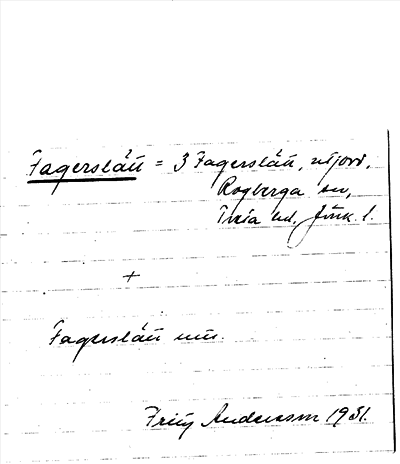 Fagerslätt = 3 Fagerslätt, utjord,
Rogberga sn,
Tveta hd, Jönk. l.
+
Fagerslätt
Andersson 1931.